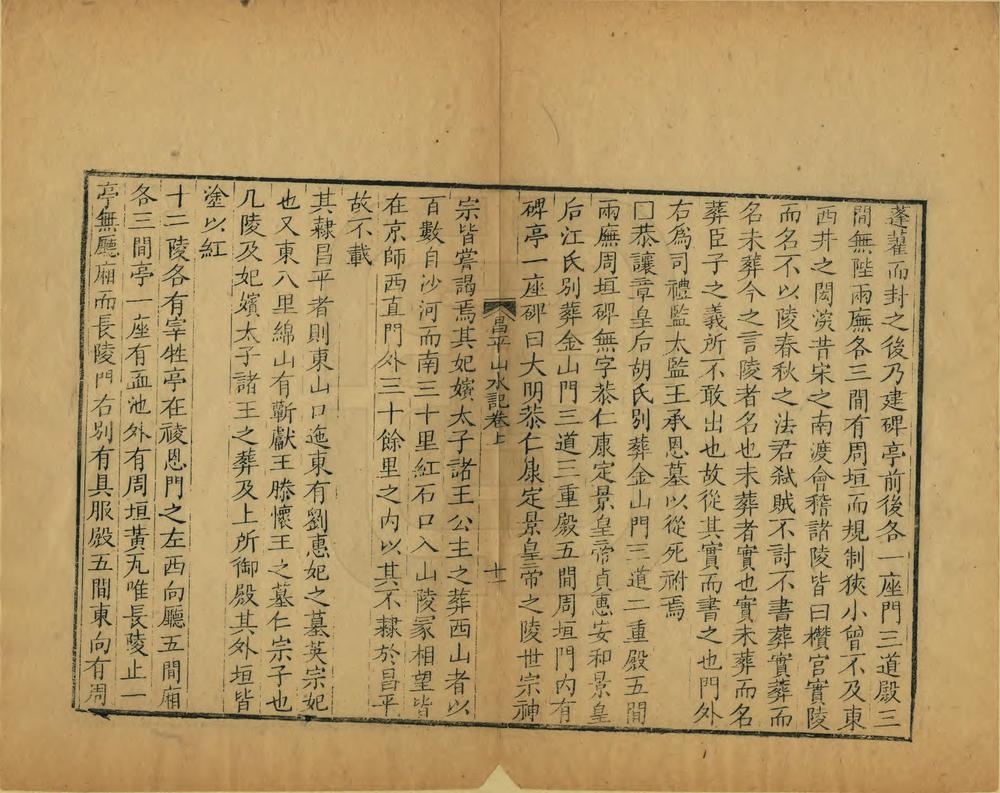 蓬藋而封之後乃建碑亭前後各一座門三道殿三
間無陛兩廡各三間有周垣而規制狹小曾不及東
西井之閎深昔宋之南渡會稽諸陵皆曰欑宮實陵
而名不以陵春秋之法君弒賊不討不書葬實葬而
名未葬今之言陵者名也未葬者實也實未葬而名
葬臣子之義所不敢出也故從其實而書之也門外
右爲司禮監太監王承恩墓以從死祔焉
□恭讓章皇后胡氏別葬金山門三道二重殿五間
兩廡周垣碑無字恭仁康定景皇帝貞惠安和景皇
后江氏別葬金山門三道三重殿五間周垣門內有
碑亭一座碑曰大明恭仁康定景皇帝之陵世宗神
昌平山水記卷上
十一
宗皆嘗謁焉其妃嬪太子諸王公主之葬西山者以
百數自沙河而南三十里紅石口入山陵冢相望皆
在京師西直門外三十餘里之內以其不隸於昌平
故不載
其隸昌平者則東山口迤東有劉惠妃之墓英宗妃
也又東八里綿山有蘄獻王滕懷王之墓仁宗子也
凡陵及妃嬪太子諸王之葬及上所御殿其外垣皆
塗以紅
十二陵各有宰牲亭在祾恩門之左西向廳五間廂
各三間亭一座有血池外有周垣黃瓦唯長陵止一
亭無廳廂而長陵門右別有具服殿五間東向有周